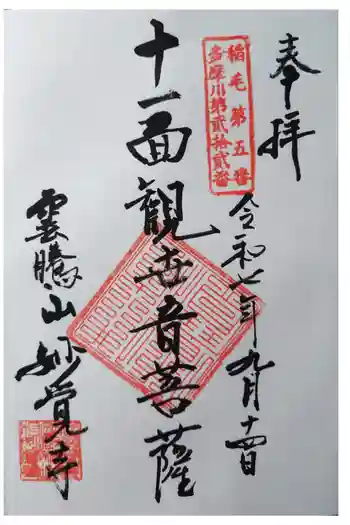 奉拝
稲毛第五番
多摩川第貳拾貳番
令和七年九月十四日
十一面観世音菩薩
雲騰山妙覚寺